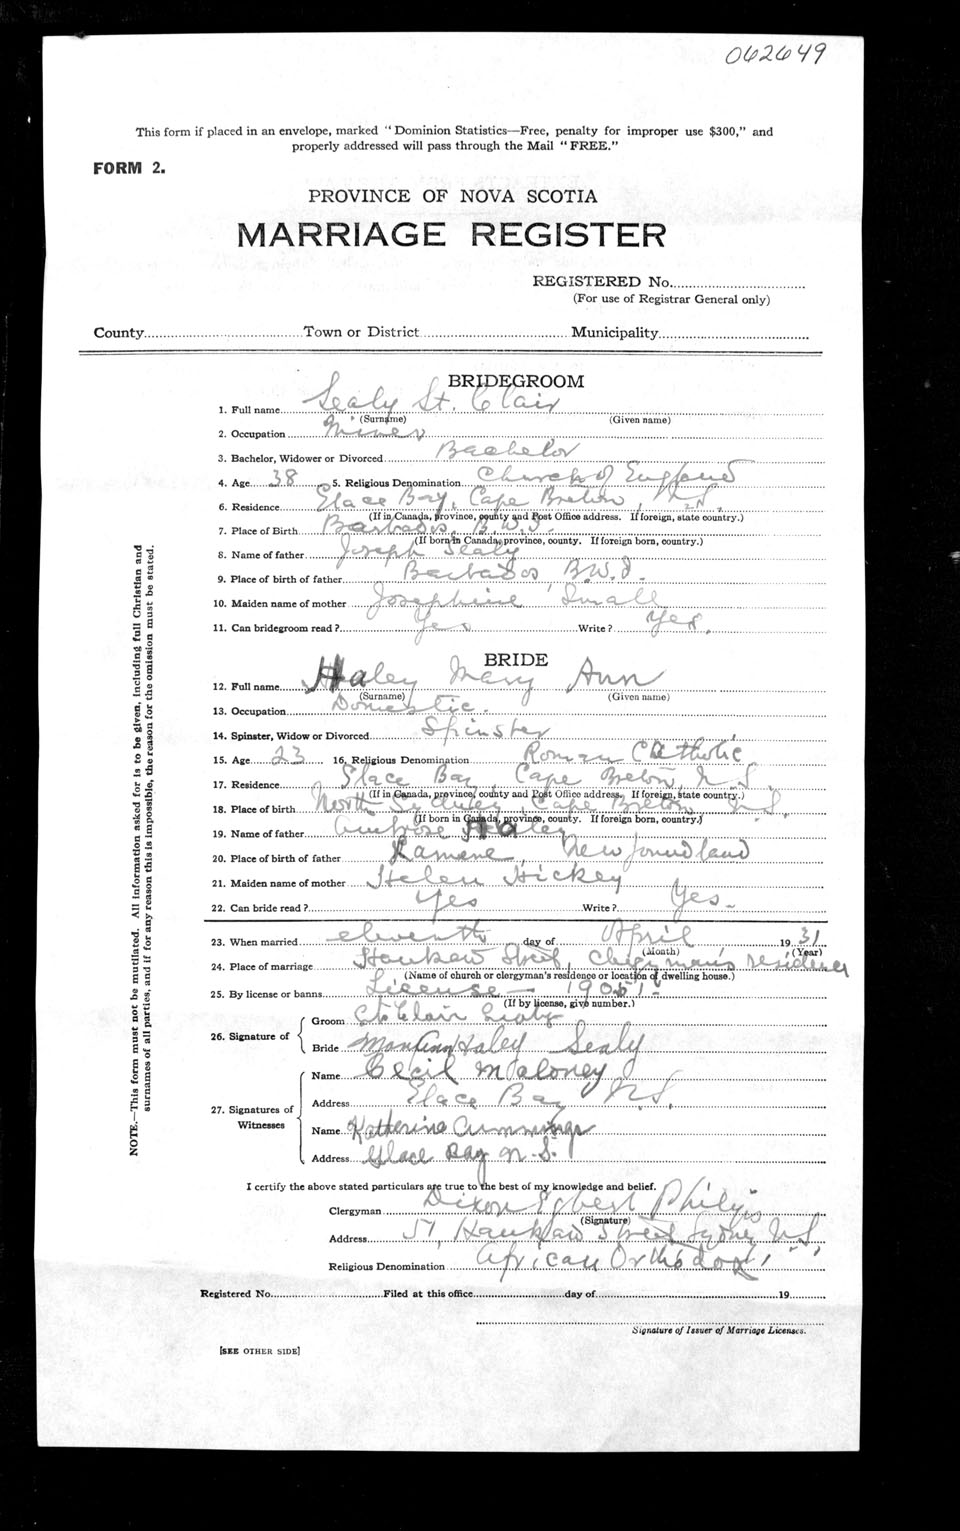 062649
This form if placed in an envelope, marked "Dominion Statistics—Free, penalty for improper use $300," and
properly addressed will pass through the Mail "FREE."
FORM 2.
PROVINCE OF NOVA SCOTIA
MARRIAGE REGISTER
REGISTERED No.
(For use of Registrar General only)
County Town or District Municipality
BRIDEGROOM
1. Full name Sealy St. Clair
(Surname) (Given name)
2. Occupation Miner
3. Bachelor, Widower or Divorced Bachelor
4. Age 38 5. Religious Denomination Church of England
6. Residence Glace Bay, Cape Breton, N.S.
(If in Canada, province, county and Post Office address. If foreign, state country.)
7. Place of Birth Barbados, B.W.I.
(If born in Canada, province, county. If foreign born, country.)
8. Name of father Joseph Sealy
9. Place of birth of father Barbados B.W.I.
10. Maiden name of mother Josephine Small
11. Can bridegroom read? Yes Write? Yes.
BRIDE
12. Full name Haley Mary Ann
(Surname) (Given name)
13. Occupation Domestic.
14. Spinster, Widow or Divorced Spinster
15. Age 23 16. Religious Denomination Roman Catholic
17. Residence Glace Bay, Cape Breton, N.S.
(If in Canada, province, county and Post Office address. If foreign, state country.)
18. Place of birth North Sydney, Cape Breton N.S.
(If born in Canada, province, county. If foreign born, country.)
19. Name of father Ambrose Haley
20. Place of birth of father Ramene, Newfoundland
21. Maiden name of mother Helen Hickey
22. Can bride read? Yes Write? Yes-
23. When married eleventh day of April 1931
(Month) (Year)
24. Place of marriage Street, clergyman's residence
(Name of church or clergyman's residence or location of dwelling house.)
25. By license or banns License —
(If by license, give number.)
26. Signature of Groom St Clair Sealy
Bride Mary Ann Haley Sealy
27. Signatures of Witnesses Name Cecil Maloney
Address Glace Bay N.S.
Name Katherine Cummings
Address Glace Bay N.S.
I certify the above stated particulars are true to the best of my knowledge and belief.
Clergyman Dixon Egbert Philips
(Signature)
Address Street Sydney N.S.
Religious Denomination African Orthodox
Registered No. Filed at this office day of 19
Signature of Issuer of Marriage Licenses.
[SEE OTHER SIDE]
NOTE.—This form must not be mutilated. All information asked for is to be given, including full Christian and
surnames of all parties, and if for any reason this is impossible, the reason for the omission must be stated.